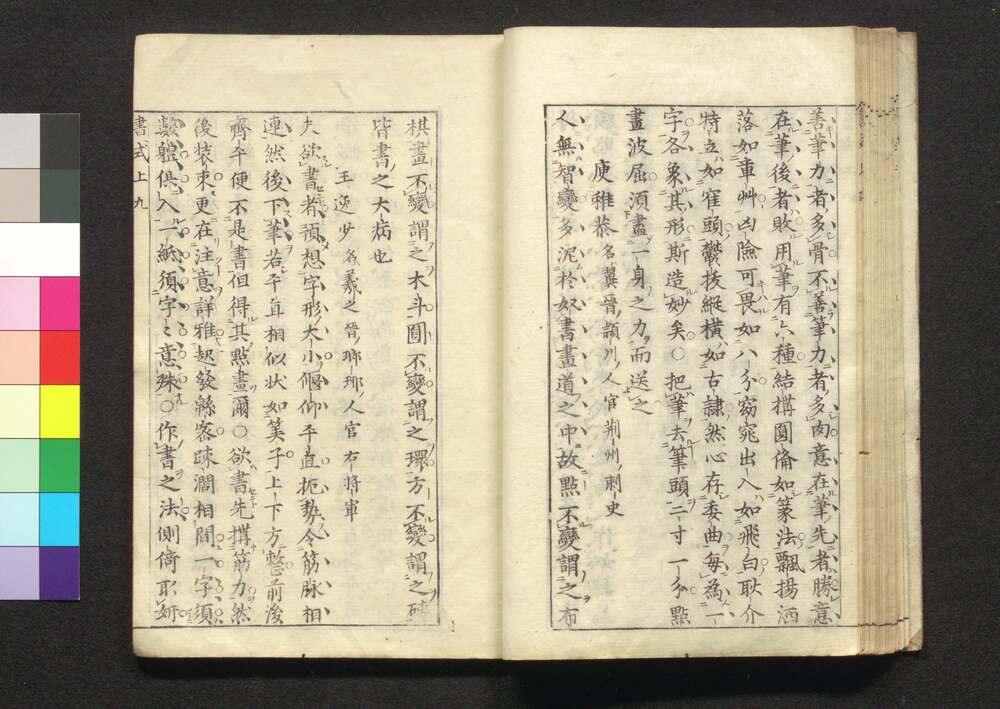 善筆力者多骨不善筆力者多肉意在筆先者勝意
在筆後者敗用筆有六種結搆圓俻如篆法飄揚洒
落如章艸凶險可畏如八分窈窕出入如飛白耿介
特立如寉頭欝拔縱横如古隷然心存委曲毎爲一
字各象其形斯造妙矣○把筆去筆頭二寸一分點
畫波屈須盡一身之力而送之
庾稚恭名翼晉頴川人官荆州刺史
人無智變多泥於奴書畫道之中故點不變謂之布
棋畫不變謂之木斗圓不變謂之環方不變謂之
皆書之大病也
王逸少名羲之晉瑯琊人官右將軍
夫欲書者預想字形大小偃仰平直扼勢令筋脉相
連然後下筆若平直相似状如筭子上下方整前後
齊平便不是書但得其點畫爾○欲書先搆筋力然
後装束更在注意詳雅起發緜宻疎濶相間一字須
數體俱入一紙須字々意殊○作書之法側倚取妍
書式上九